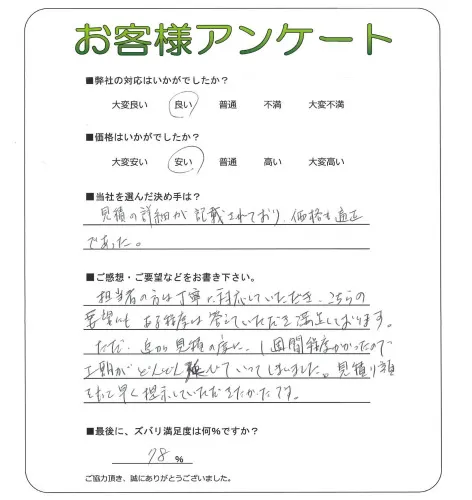 お客様アンケート
■弊社の対応はいかがでしたか？
大変良い 良い 普通 不満 大変不満
■価格はいかがでしたか？
大変安い 安い 普通 高い 大変高い
■当社を選んだ決め手は？
見積の詳細が記載されており、価格も適正
であった。
■ご感想・ご要望などをお書き下さい。
担当者の方は丁寧に対応していただき、こちらの
要望にもある程度は答えていただき満足しております。
ただ、追加見積の度に、1週間程度かかったので
工期がどんどん延びていってしまいました。見積り額
をもっと早く提示していただきたかったです。
■最後に、ズバリ満足度は何%ですか？
78 %
ご協力頂き、誠にありがとうございました。